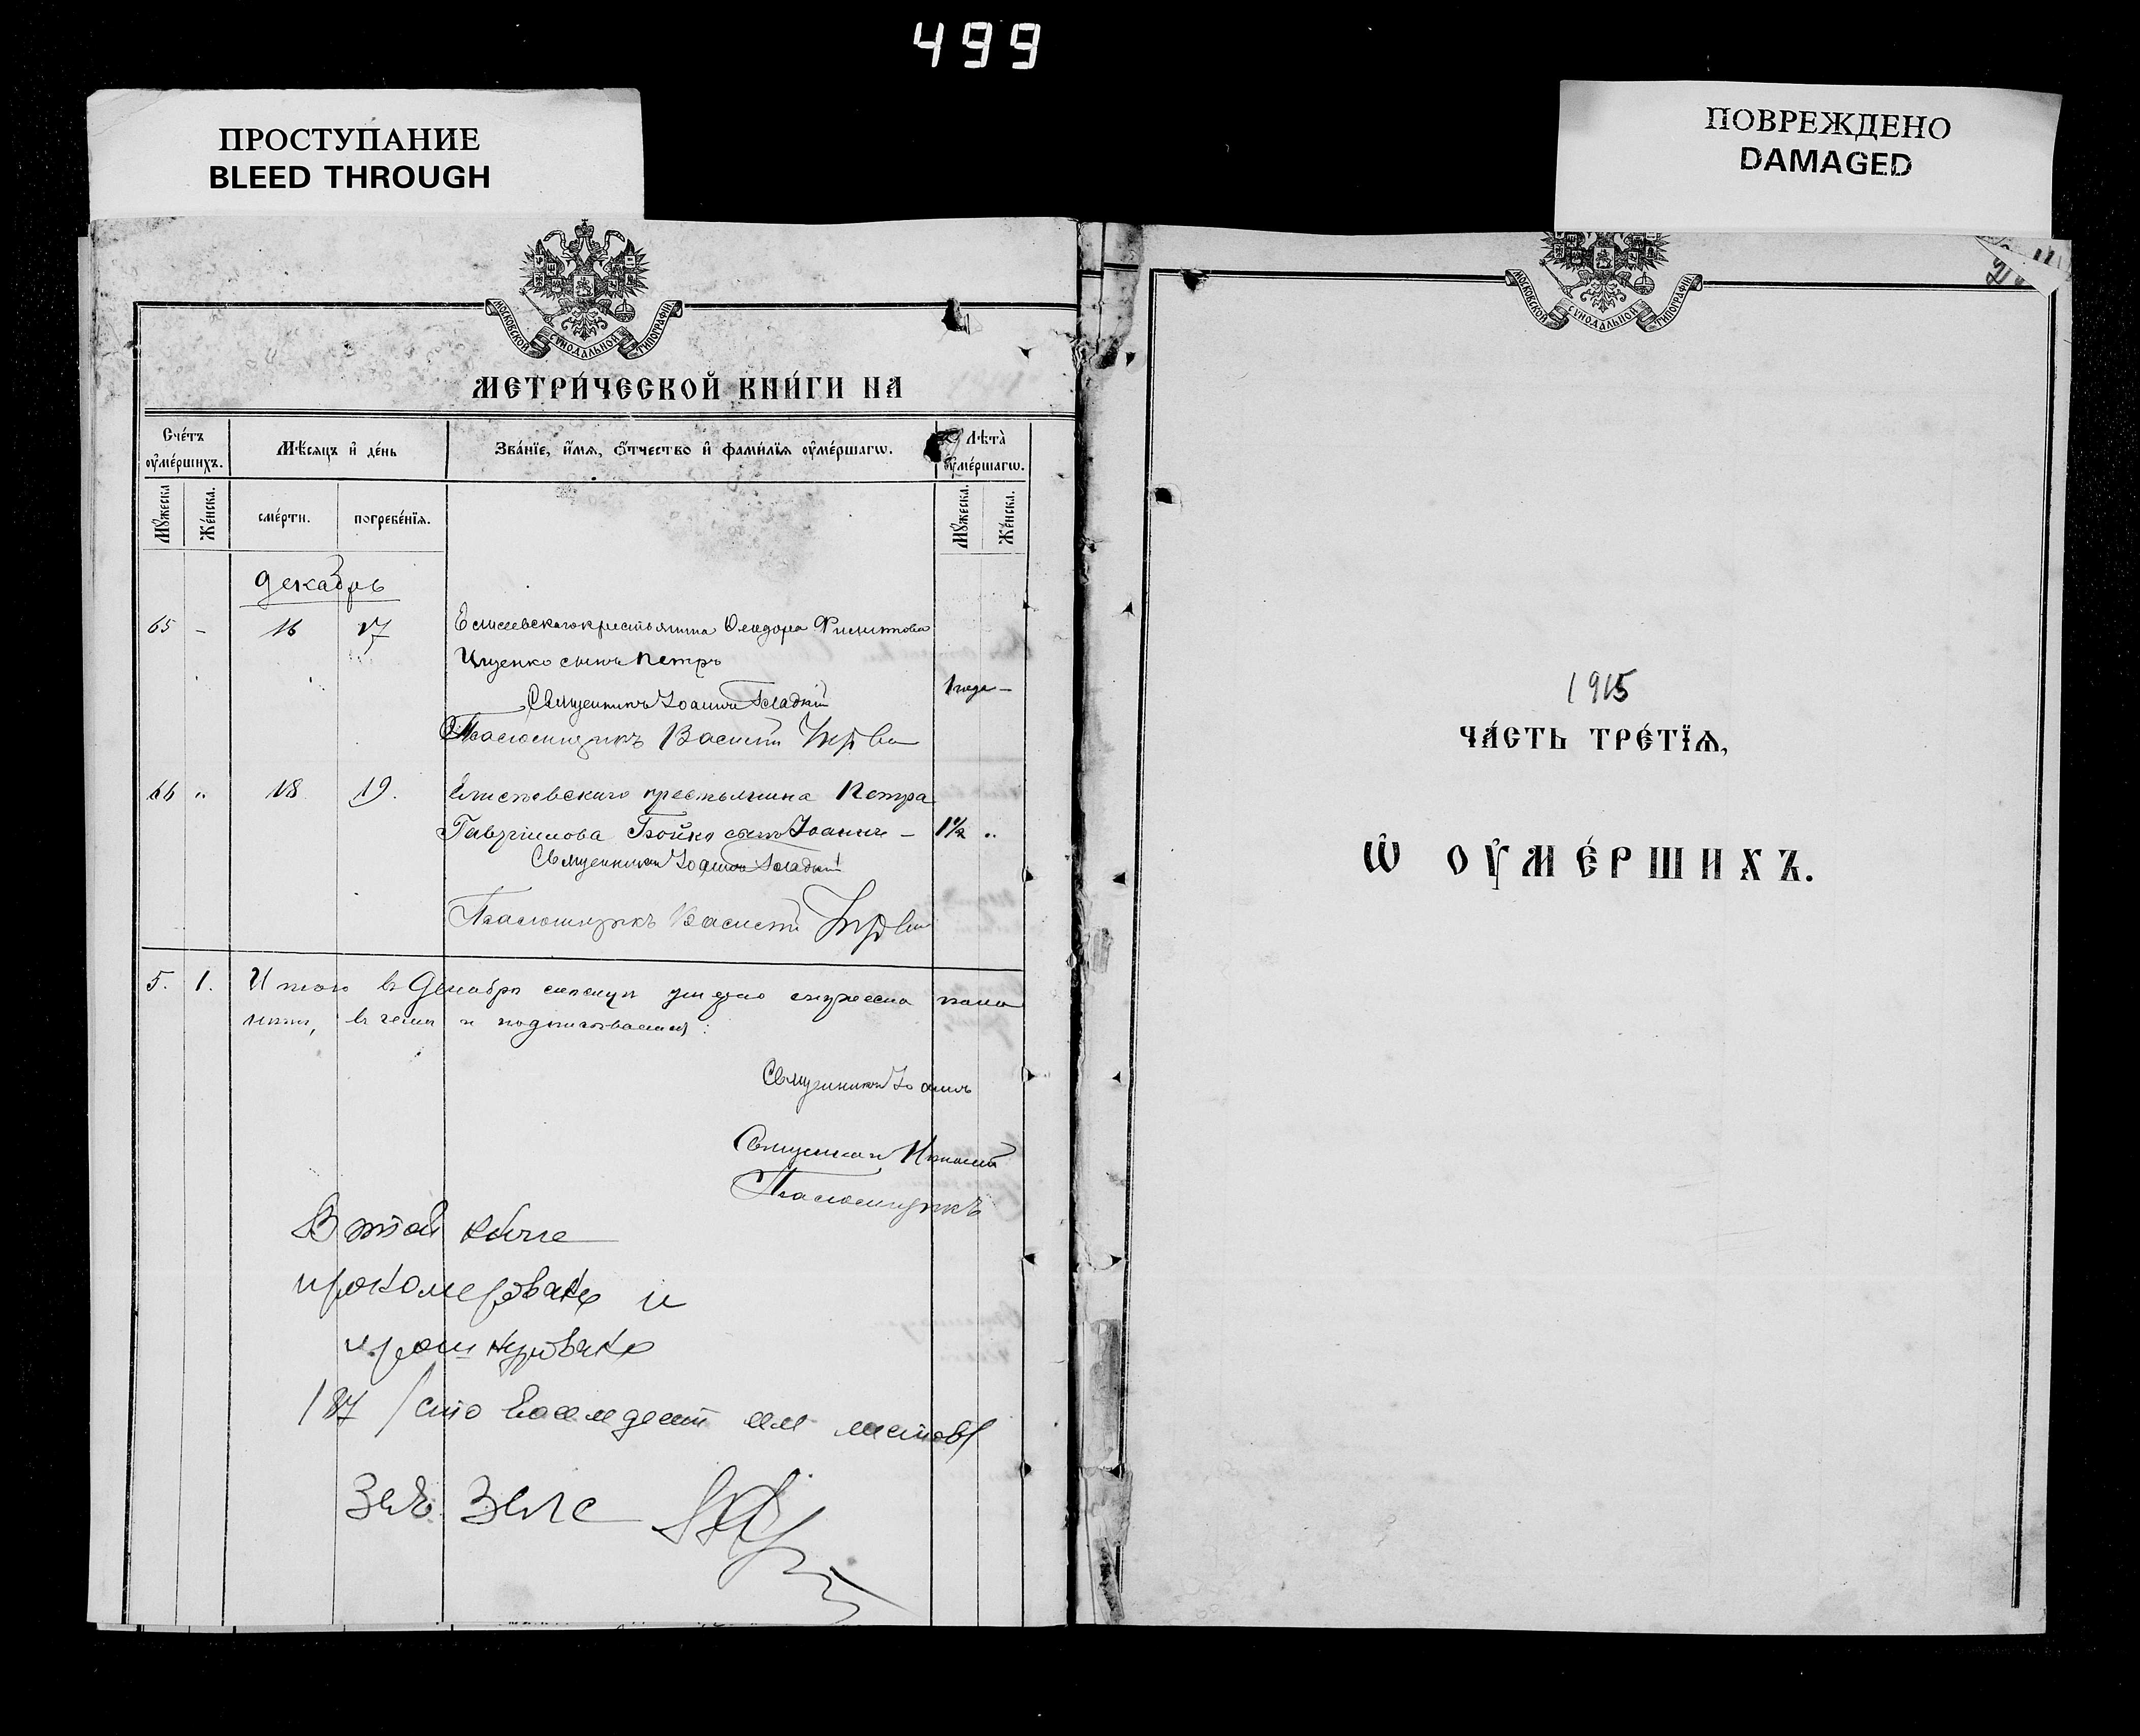 499
ПРОСТУПАНИЕ
BLEED THROUGH
ПОВРЕЖДЕНО
DAMAGED
МОСКОВСКОЙ СѴНОДАЛЬНОЙ ТИПОГРАФІИ
МЕТРИ́ЧЕСКОЙ КНИ́ГИ НА
Сче́тъ ᲂу҆ме́ршихъ.
Мѣ́сяцъ и҆ де́нь
Зва́нїе, и҆́мѧ, ѻ҆́тчество и҆ фами́лїѧ ᲂу҆ме́ршагѡ.
Лѣ́та ᲂу҆ме́ршагѡ.
Мꙋ́жеска
Же́нска.
сме́рти.
погребе́нїѧ.
Мꙋ́жеска.
Же́нска.
Декабрь
65 - 16 17 Елисеевскаго крестьянина Ѳеодора
Ищенко сынъ Петръ
1 года -
Священникъ Іоаннъ Гладкій
Псаломщикъ Василій
66 " 18 19. Елисеевскаго крестьянина Петра
Гавріилова Бойко сынъ Іоаннъ - 1½ "
Священникъ Іоаннъ Гладкій
Псаломщикъ Василій
5. 1. Итого в Декабрѣ мѣсяцѣ умерло мужеска пола
в чемъ и подписываемся:
Священникъ Іоаннъ
Священникъ
Псаломщикъ
В этой книге
прономеровано и
прошнуровано
187 /сто восемдесят сем листов/
Зав. Загс
МОСКОВСКОЙ СѴНОДАЛЬНОЙ ТИПОГРАФІИ
1915
ЧА́СТЬ ТРЕ́ТЇѦ,
Ѡ҆ ОУ҆МЕ́РШИХЪ.